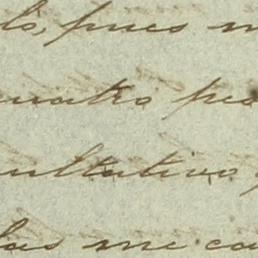 lo, pues n
cuatro pes
ultativo y
las me ca